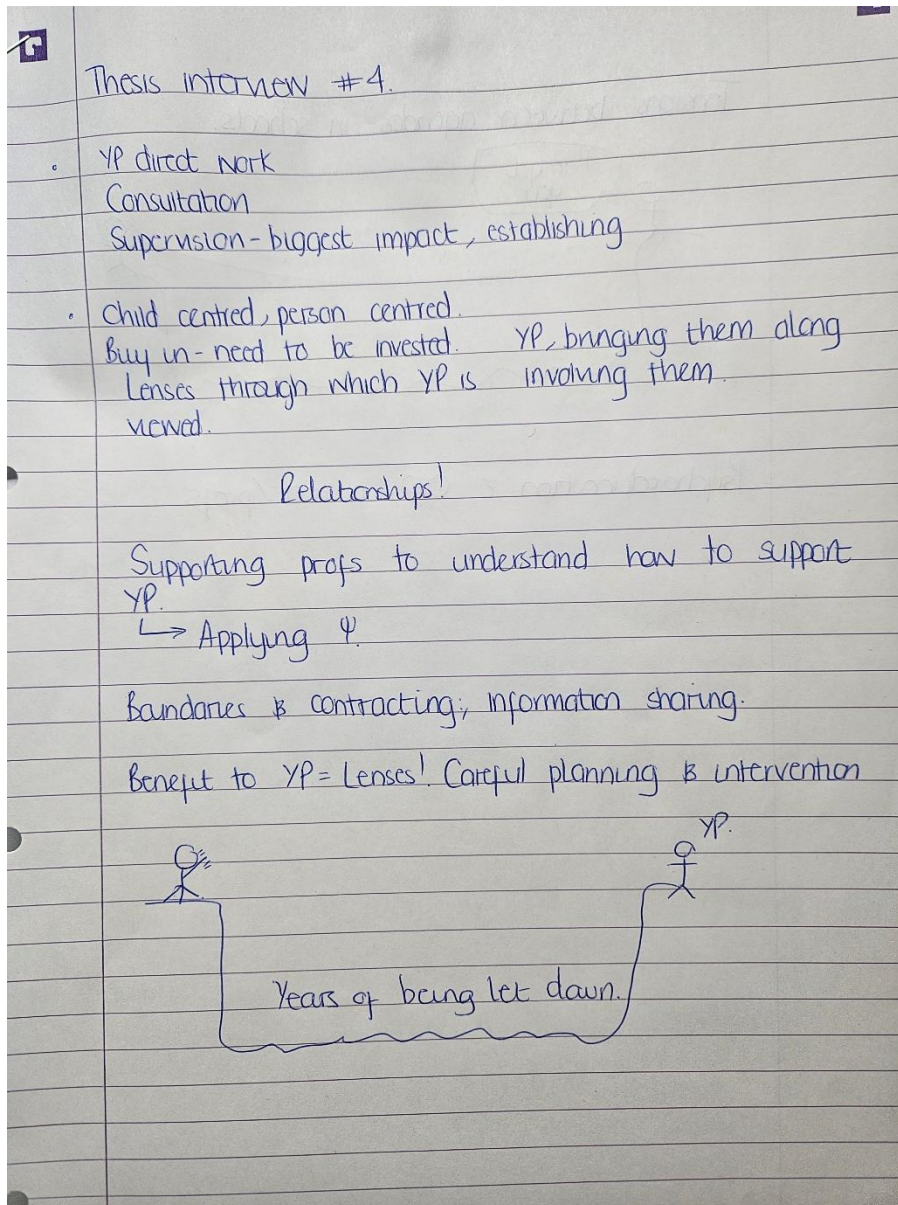 Thesis interview #4.
YP direct work
Consultation
Supervision - biggest impact, establishing
Child centred, person centred.
Buy in - need to be invested.
Lenses through which YP is
viewed.
YP, bringing them along
involving them.
Relationships!
Supporting profs to understand how to support
YP.
↳ Applying Ψ.
Boundaries & contracting; information sharing.
Benefit to YP = Lenses! Careful planning & intervention
YP.
Years of being let down.